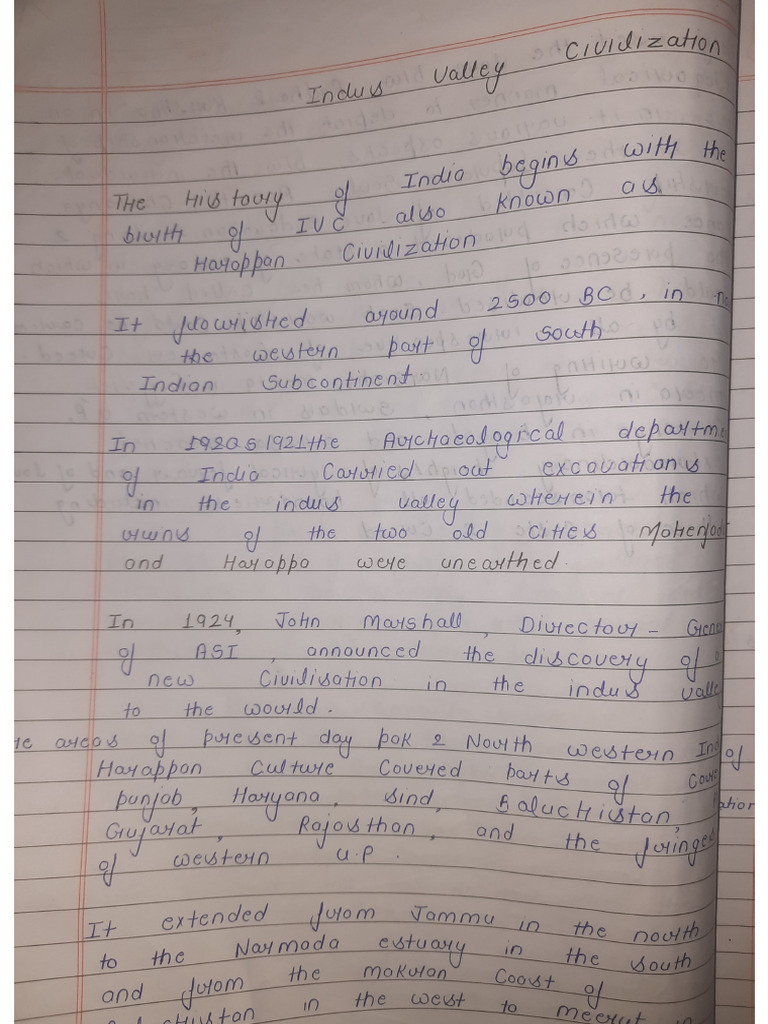 Indus Valley Civilization
The History of India begins with the
birth of IVC also known as
Harappan Civilization
It flourished around 2500 BC, in
the western part of South
Indian Subcontinent.
In 1920s 1921the Archaeological departme
of India Carried out excavations
in the indus valley wherein the
ruins of the two old cities Mohenjod
and Harappa were unearthed.
In 1924, John Marshall, Director- Gene
of ASI, announced the discovery of a
new Civilisation in the indus valle
to the world.
areas of present day pok & North western In
Harappan Culture Covered parts of
punjab, Haryana, Sind, Baluchistan,
Gujarat, Rajasthan, and the fringes
of western U.P.
It extended from Jammu in the north
to the Narmada estuary in the south
and from the makran Coast of
in the west to meerut in